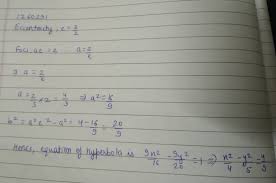 1260291
Eccentricity, e = 3/2
Foci, ae = 2
⇒ a = 2/e
a = 2/3 × 2 = 4/3 ⇒ a² = 16/9
b² = a²e² - a² = 4 - 16/9 = 20/9
Hence, equation of hyperbola is 9x²/16 - 9y²/20 = 1 ⇒ x²/4 - y²/5 = 4/9